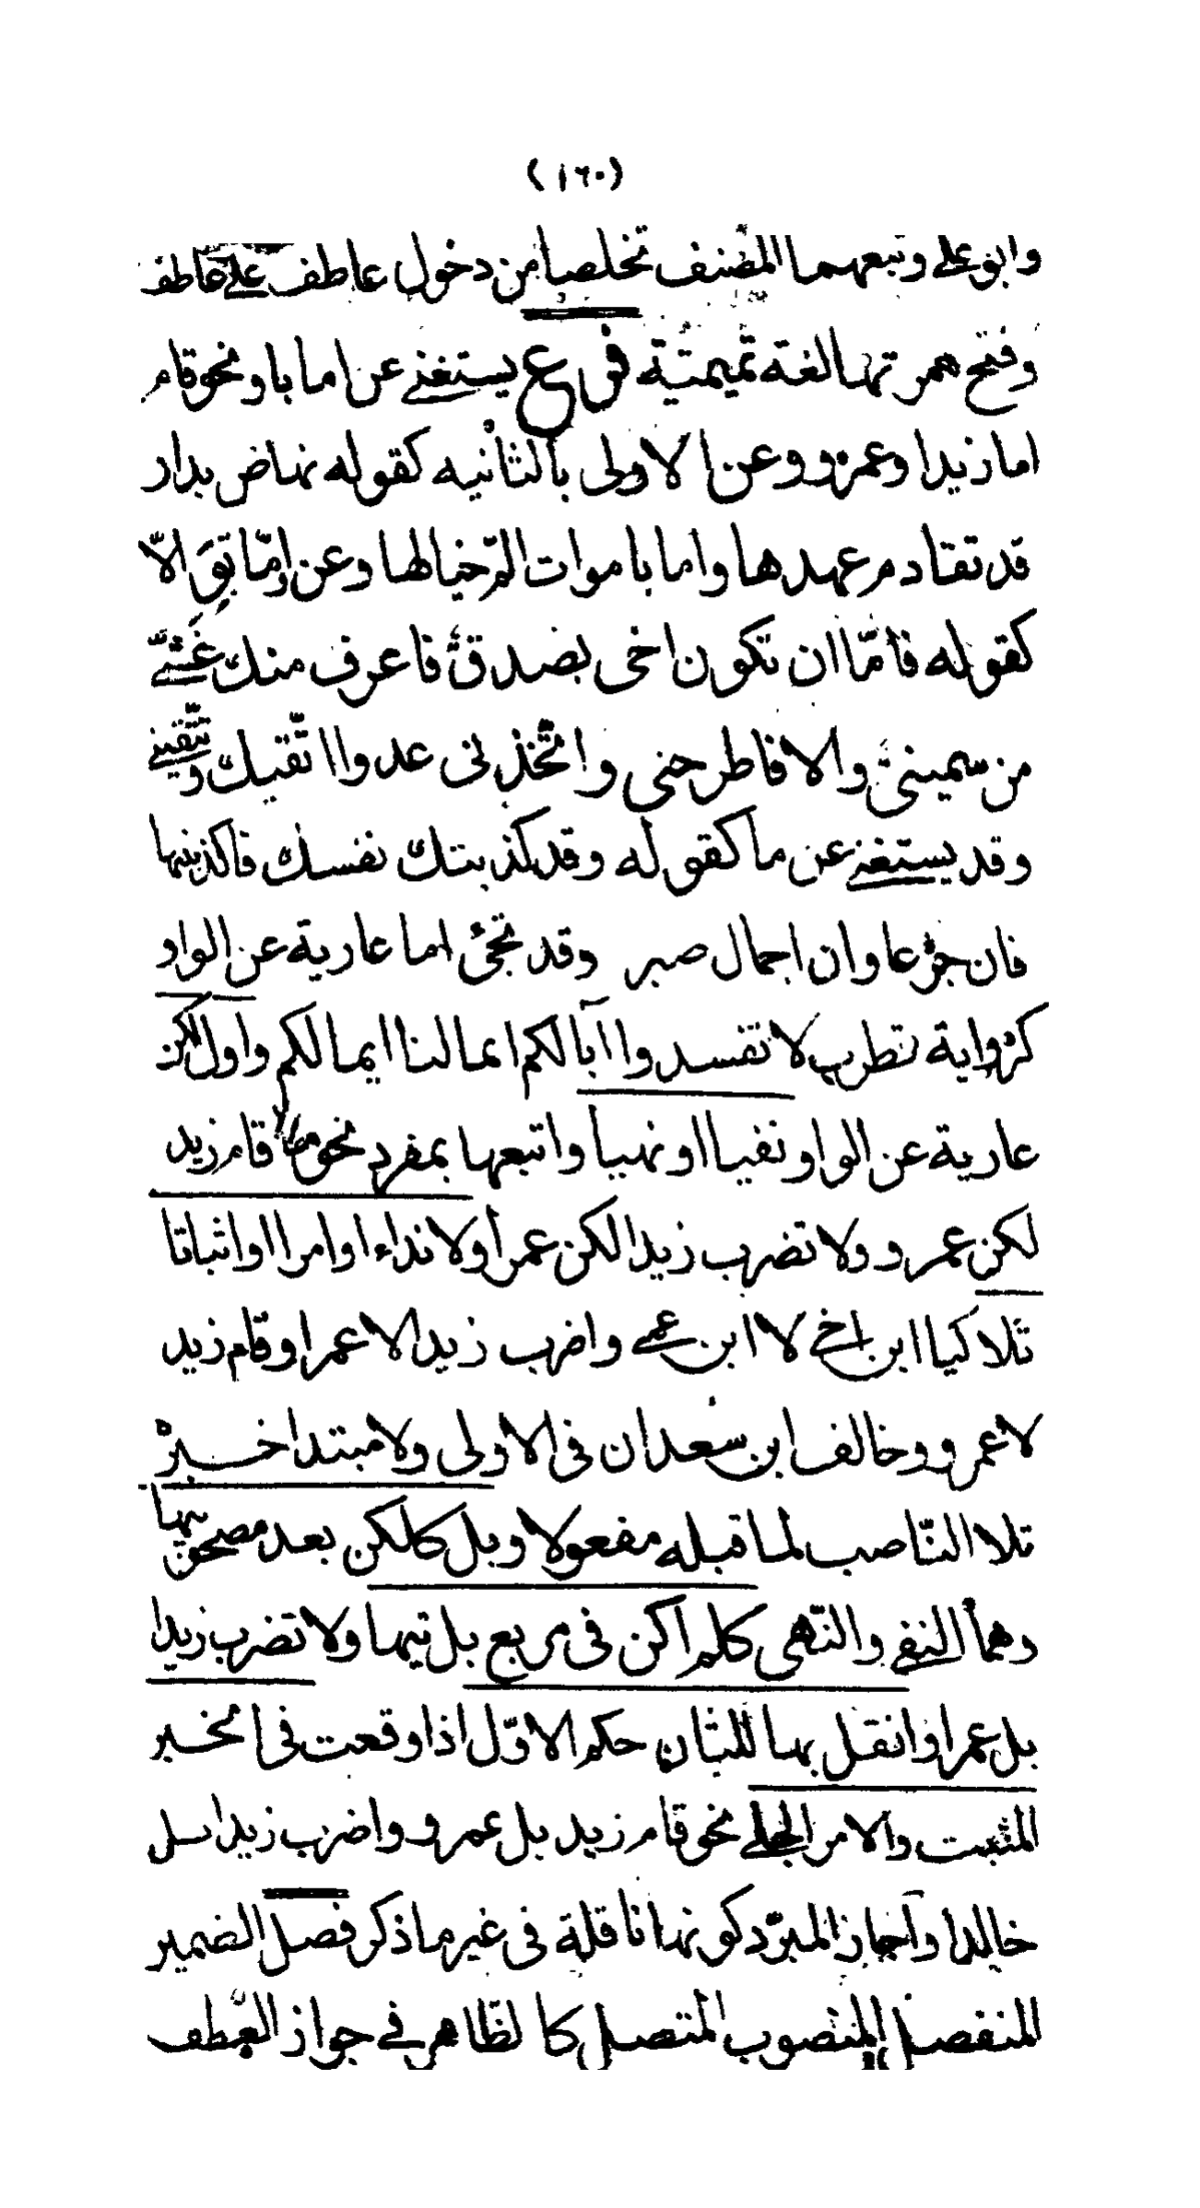 (١٦٠)
وابو على وتبعهما المصنف تخلصا من دخول عاطف على عاطف
وفتح همزتها لغة تميمية فرع يستغنى عن اما باو نحو قام
اما زيد او عمرو وعن الاولى بالثانيه كقوله نهاض بدار
قد تقادم عهدها واما باموات الم خيالها وعن إمّا بق الاّ
كقوله فامّا ان تكون اخى بصدق فاعرف منك غثّى
من سمينى والا فاطرحنى واتخذنى عدوا اتّقيك وتتّقينى
وقد يستغنى عن ما كقوله وقد كذبتك نفسك فاكذبنها
فان جزعا وان اجمال صبر وقد تجئ اما عارية عن الواو
كرواية قطرب لا تفسدوا آبالكم ايما لنا ايما لكم واول لكن
عارية عن الواو نفيا او نهيا واتبعها بمفرد نحو ما قام زيد
لكن عمرو ولا تضرب زيدا لكن عمرا ولا نداء او امرا او اثباتا
تلا كيا ابن اخى لا ابن عمى واضرب زيدا لا عمرا وقام زيد
لا عمرو وخالف ابن سعدان فى الاولى ولا مبتدا خبر
تلا النّاصب لما قبله مفعولا وبل كلكن بعد مصحوبيها
وهما النفى والنّهى كلم اكن فى مربع بل تيها ولا تضرب زيدا
بل عمرا وانقل بها للثان حكم الاوّل اذا وقعت فى الخبر
المثبت والامر الجلى نحو قام زيد بل عمرو واضرب زيدا بل
خالدا وآجاز المبرّد كونها ناقلة فى غير ما ذكر فصل الضمير
المنفصل المنصوب المتصل كالظاهر فى جواز العطف